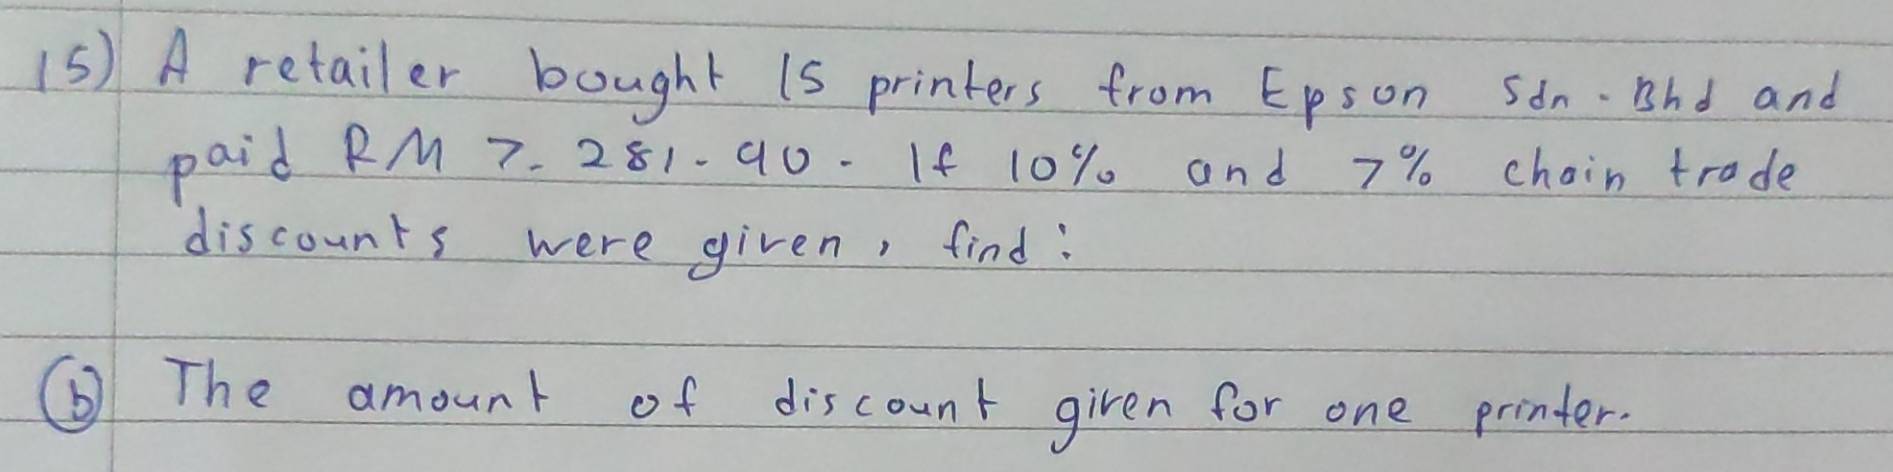 15) A retailer bought 15 printers from Epson Sdn. Bhd and
paid RM 7.281.90. If 10% and 7% chain trade
discounts were given, find:
(b) The amount of discount given for one printer.